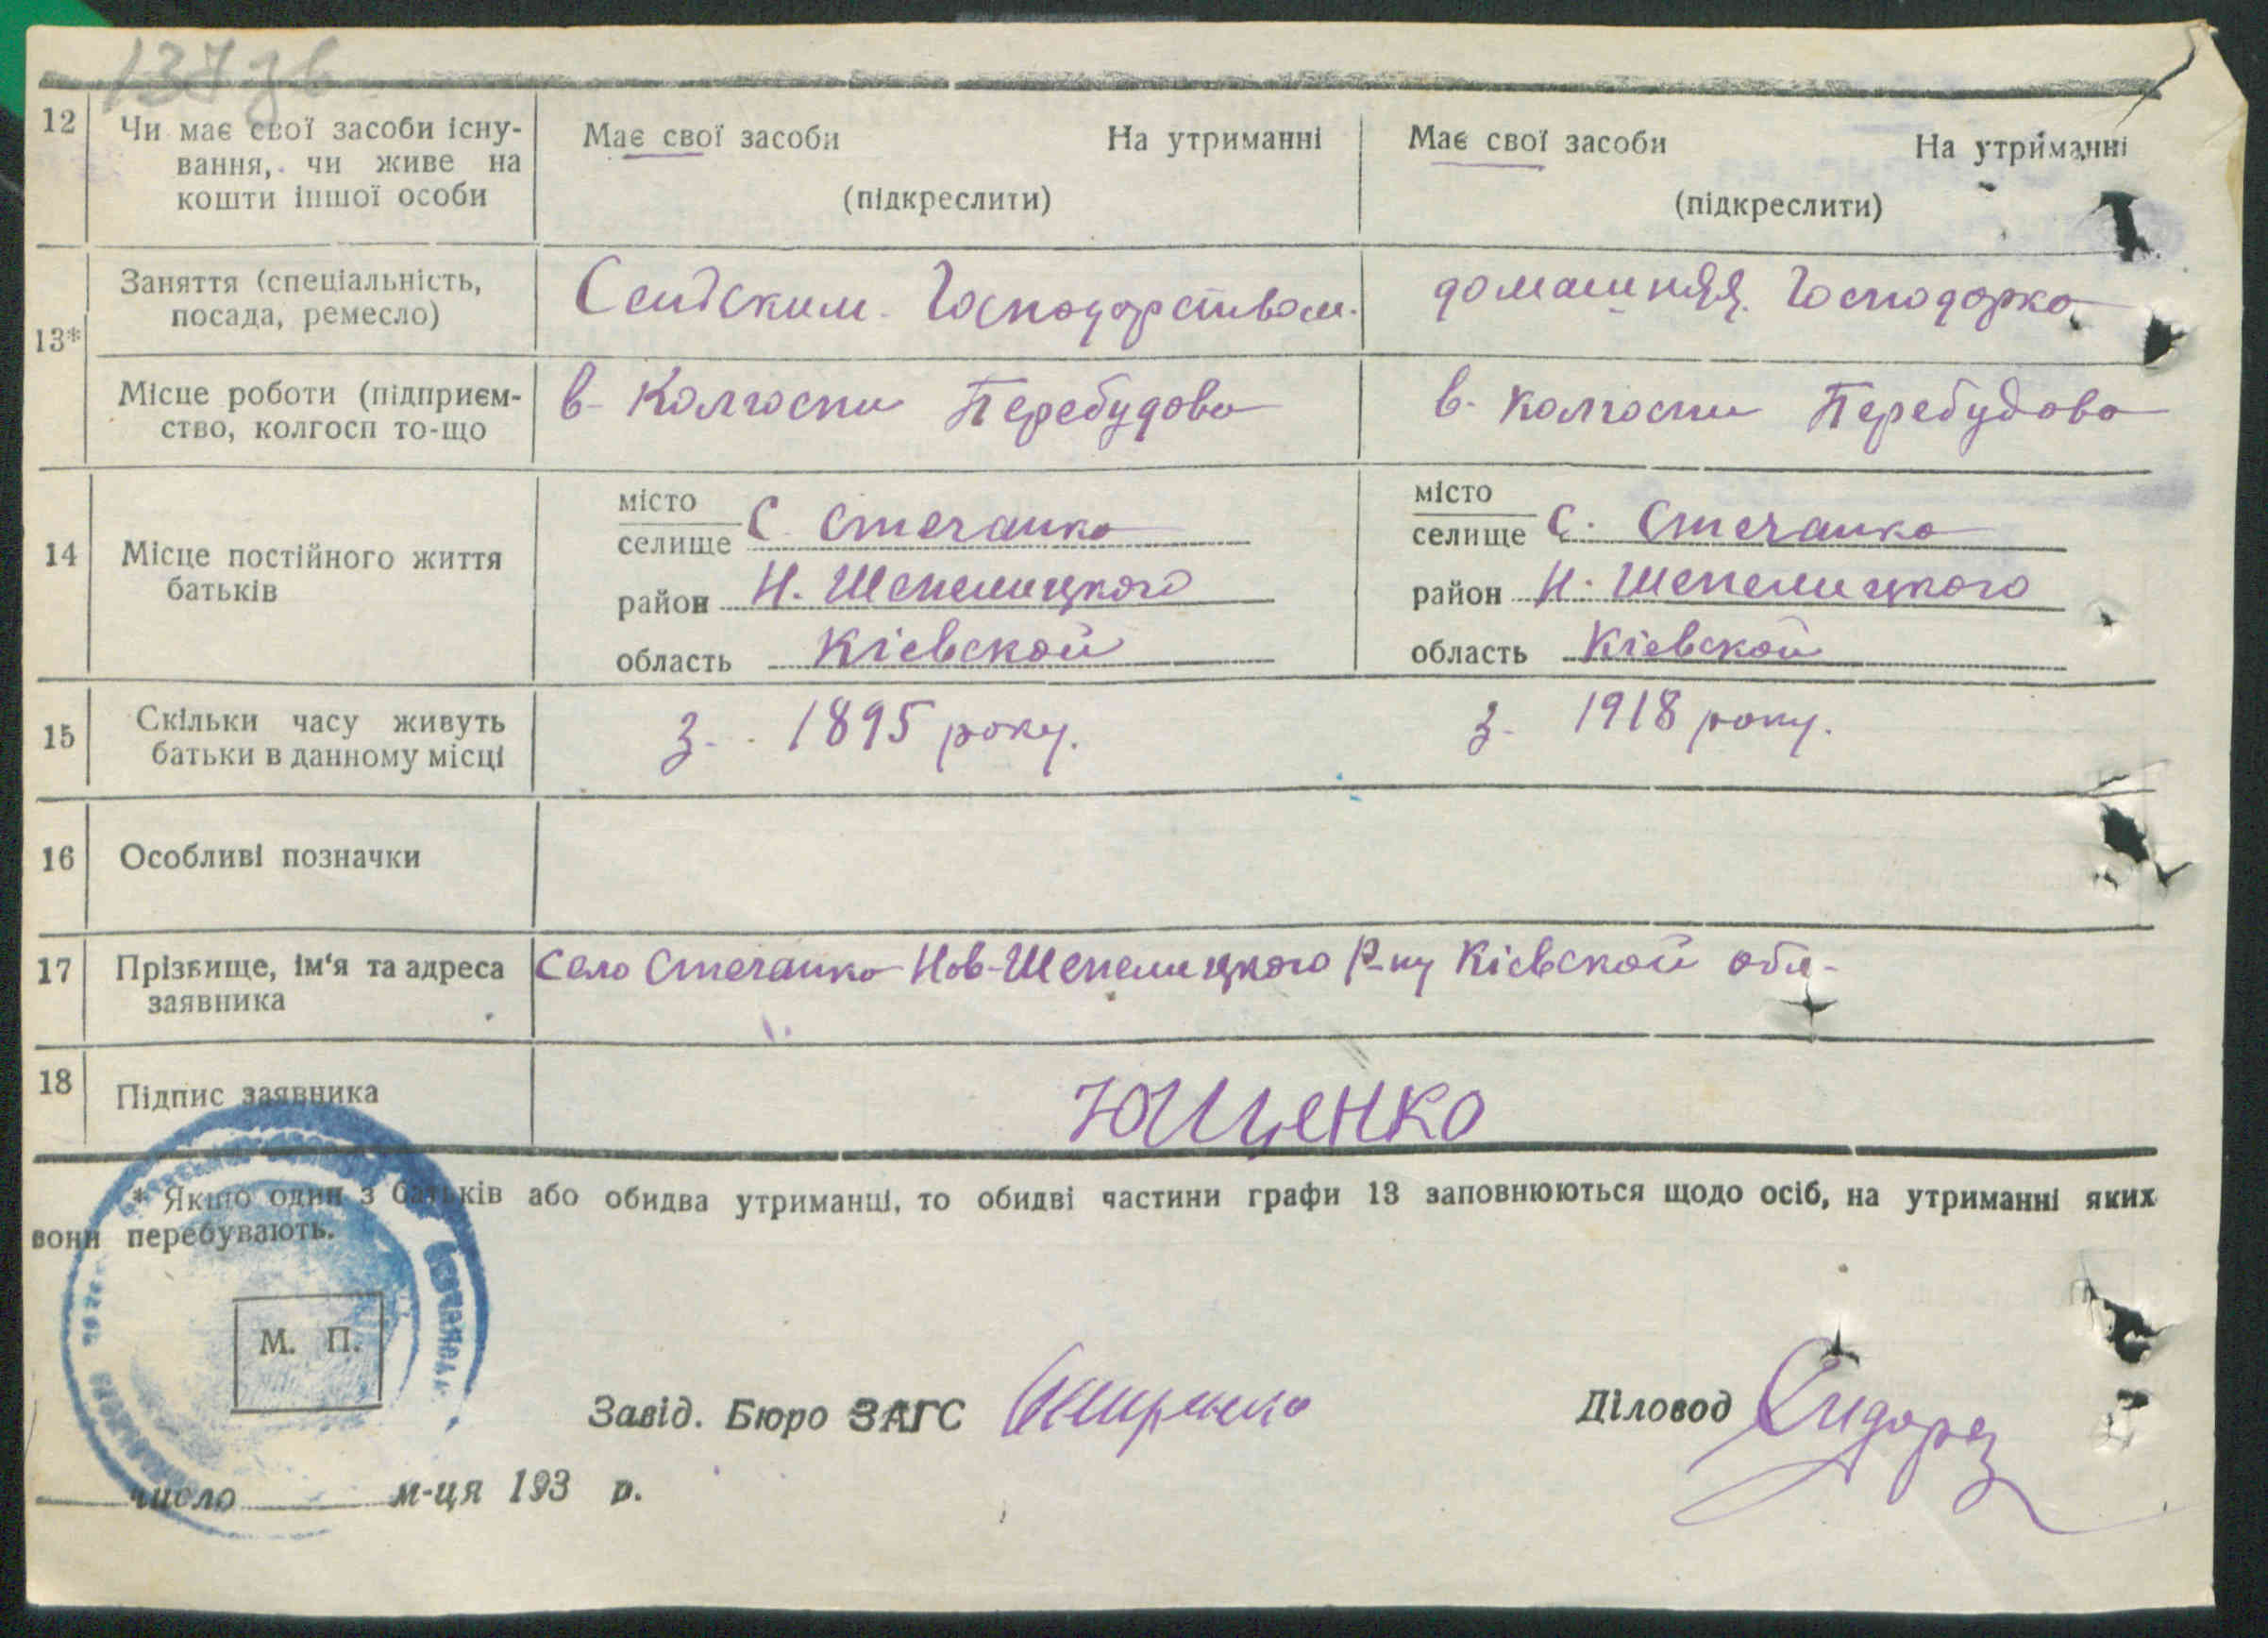 137 зв
12 Чи має свої засоби існу- Має свої засоби На утриманні Має свої засоби На утриманні
вання, чи живе на
кошти іншої особи (підкреслити) (підкреслити)
13* Заняття (спеціальність, Господарством. домашняя. Господарка
посада, ремесло)
Місце роботи (підприєм- в- Колгоспи Перебудова в- колгоспи Перебудова
ство, колгосп то-що
14 Місце постійного життя
батьків
місто місто
селище С. Стечанка селище С. Стечанка
район Н. Шепелицкого район Н. Шепелицкого
область Кіевской область Кіевской
15 Скільки часу живуть з- 1895 року. з- 1918 року.
батьки в данному місці
16 Особливі позначки
17 Прізвище, ім'я та адреса Село Стечанка Нов-Шепелицкого Р-ну Кіевской обл-
заявника
18 Підпис заявника Ющенко
* Якщо один з батьків або обидва утриманці, то обидві частини графи 13 заповнюються щодо осіб, на утриманні яких
вони перебувають.
М. П.
Завід. Бюро ЗАГС Діловод
число м-ця 193 р.